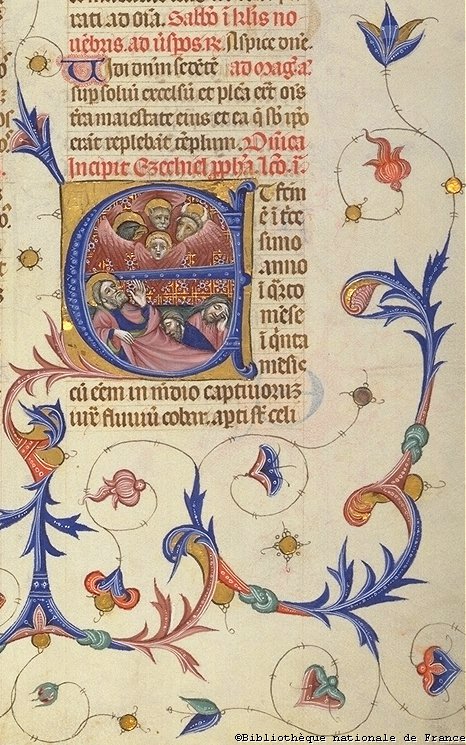 rati. ad oīa. Sabbō ī klis no
uēbris. ad ūs̄pos. R̃. s̄spice dn̄e.
Vidi dnūm sedētē ad magn̄a
sup soliū excelsū et plēa erāt oīs
tr̄a maiestate eius et ea q̄ sb̄ ip̄o
erāt replebāt templum. Dnīca
Incipit Ezechiel ꝓpħa. Lc̄o. i.
ET fcm̄
ē ī tͥce
simo
anno
ī q̄rto
mēse
ī qͥnta
mēsic
cū eēm in mdio captiuorum
iux̄ fluuiū cobar. apti st̄ celi
©Bibliothèque nationale de France